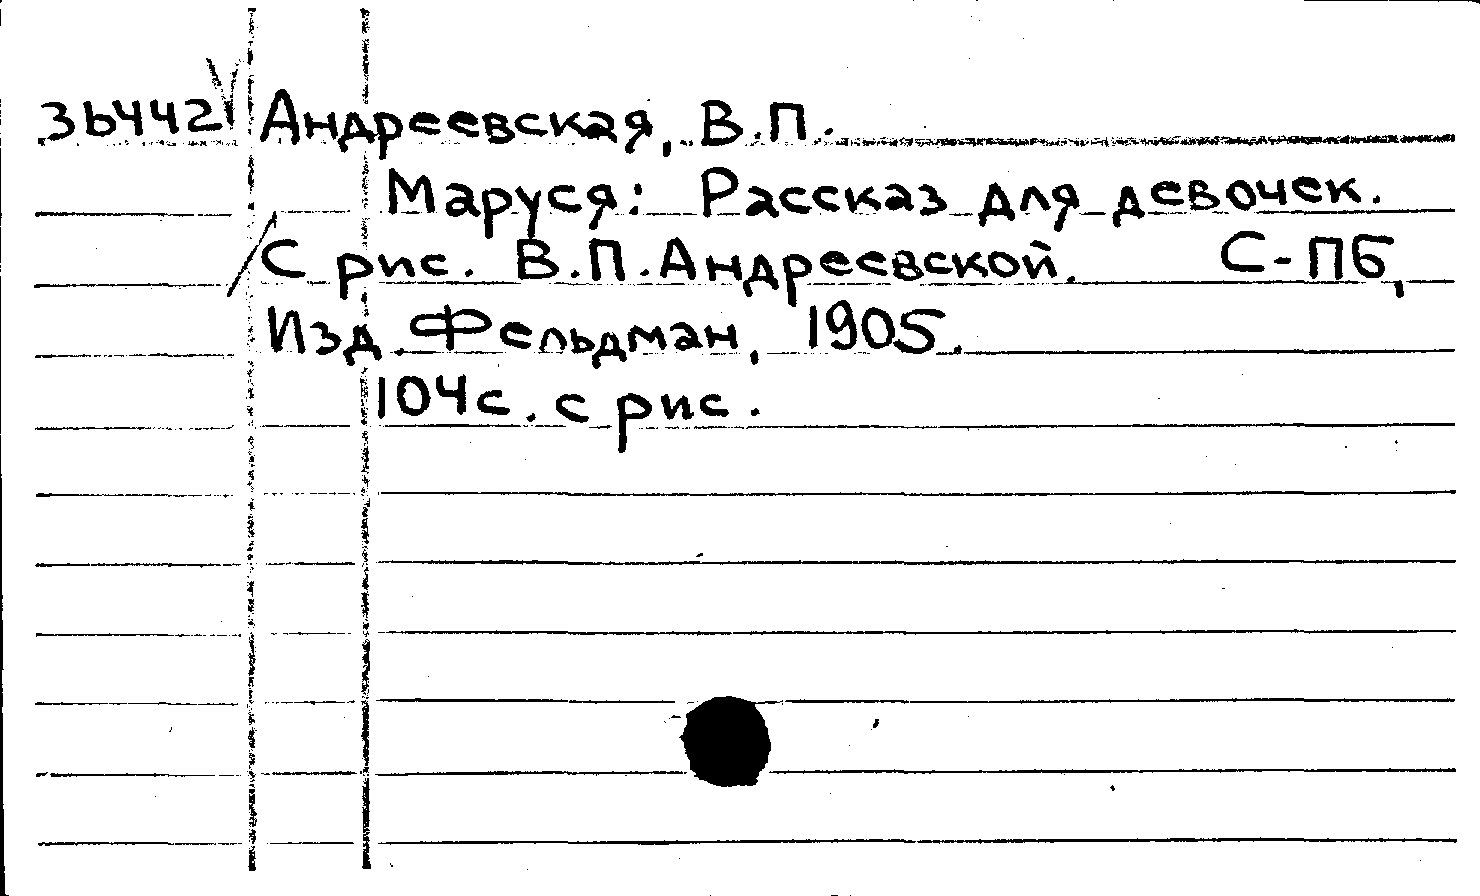 36442 Андреевская, В.П.
Маруся: Рассказ для девочек.
С рис. В.П.Андреевской. С-ПБ,
Изд. Фельдман, 1905.
104с. с рис.